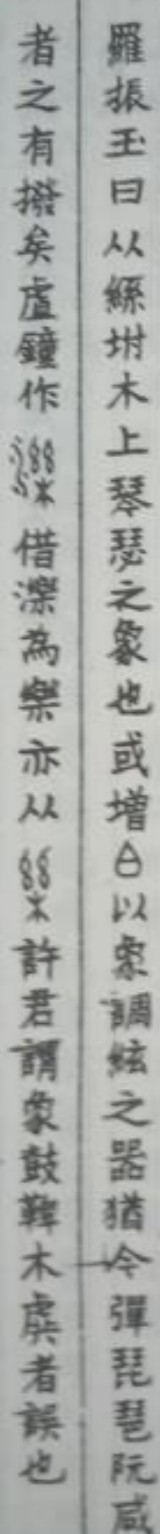 羅振玉曰从絲坿木上琴瑟之象也或增白以象調絃之器猶今彈琵琶阮咸
者之有撥矣盧鐘作借濼為樂亦从許君謂象鼓鞞木虡者誤也